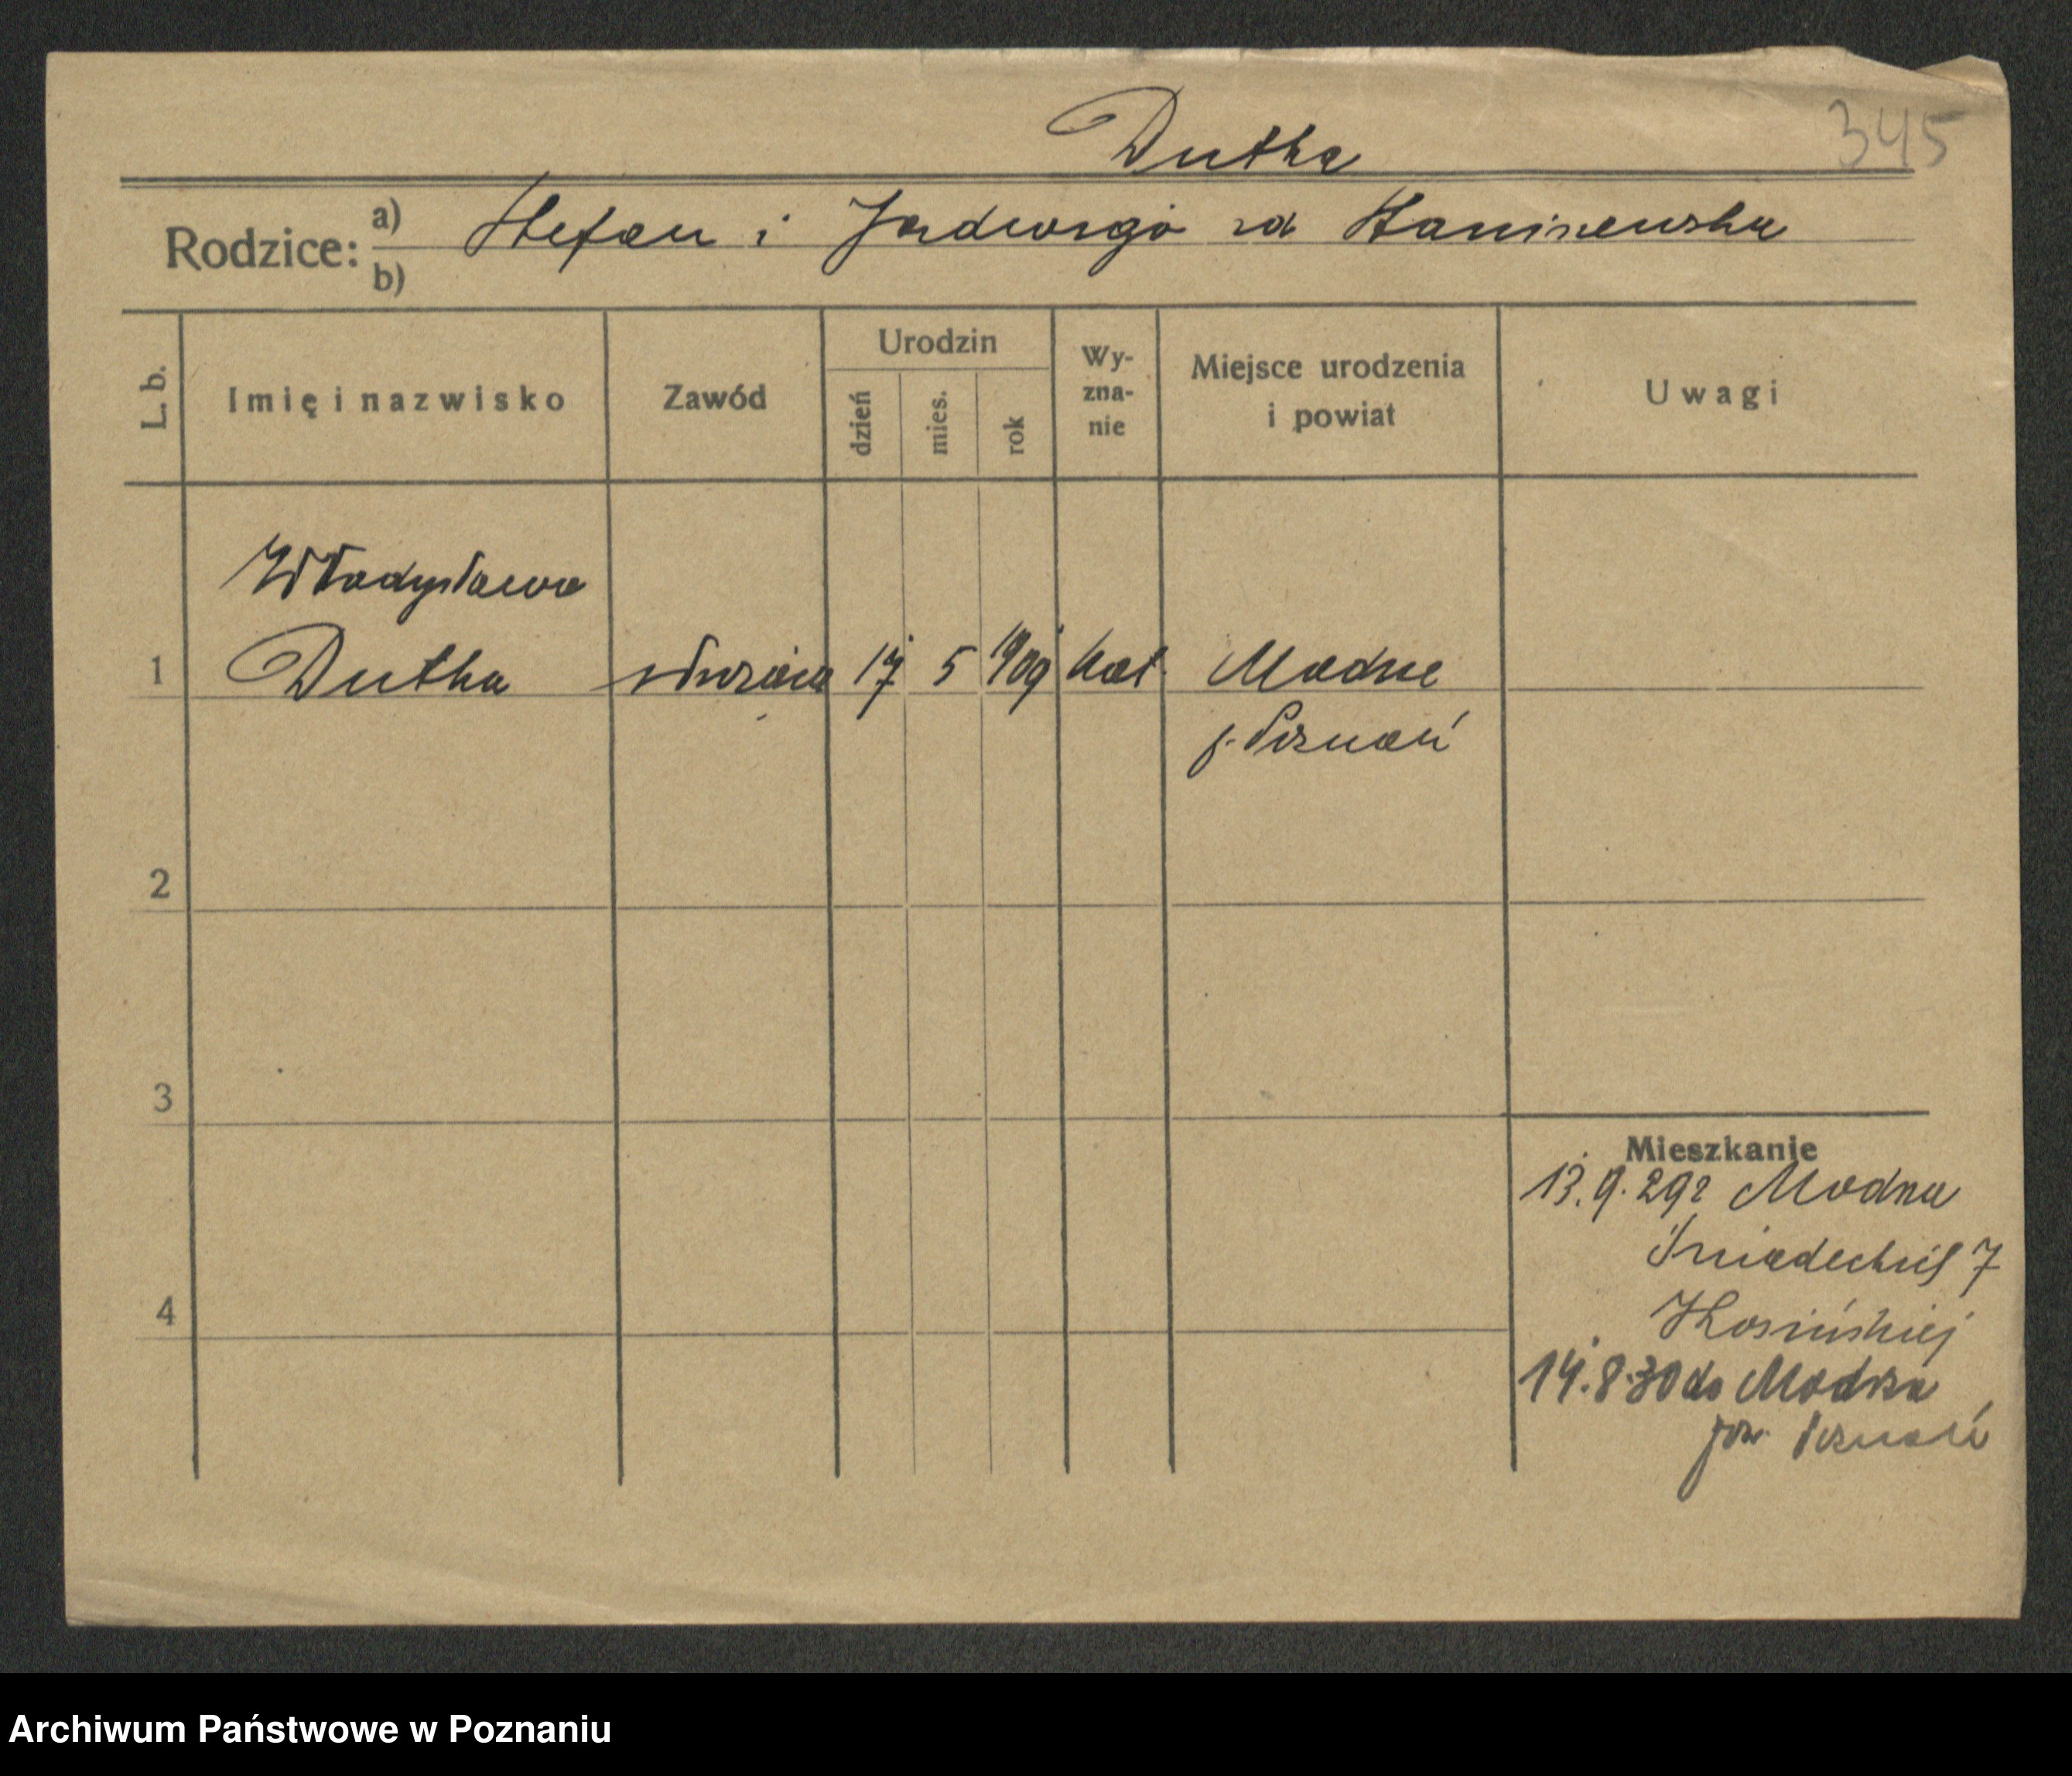 345
Dutka
Rodzice: a) Stefan i Jadwiga zd Staniszewska
b)
L. b. Imię i nazwisko Zawód Urodzin dzień mies. rok Wy-zna-nie Miejsce urodzenia i powiat Uwagi
Władysława
1 Dutka służąca 17 5 1909 kat. Modrze
p. Poznań
2
3
Mieszkanie
13.9.29 z Modrza
Śniadeckich 7
4
14.8.30 do Modrza
pow. Poznań
Archiwum Państwowe w Poznaniu